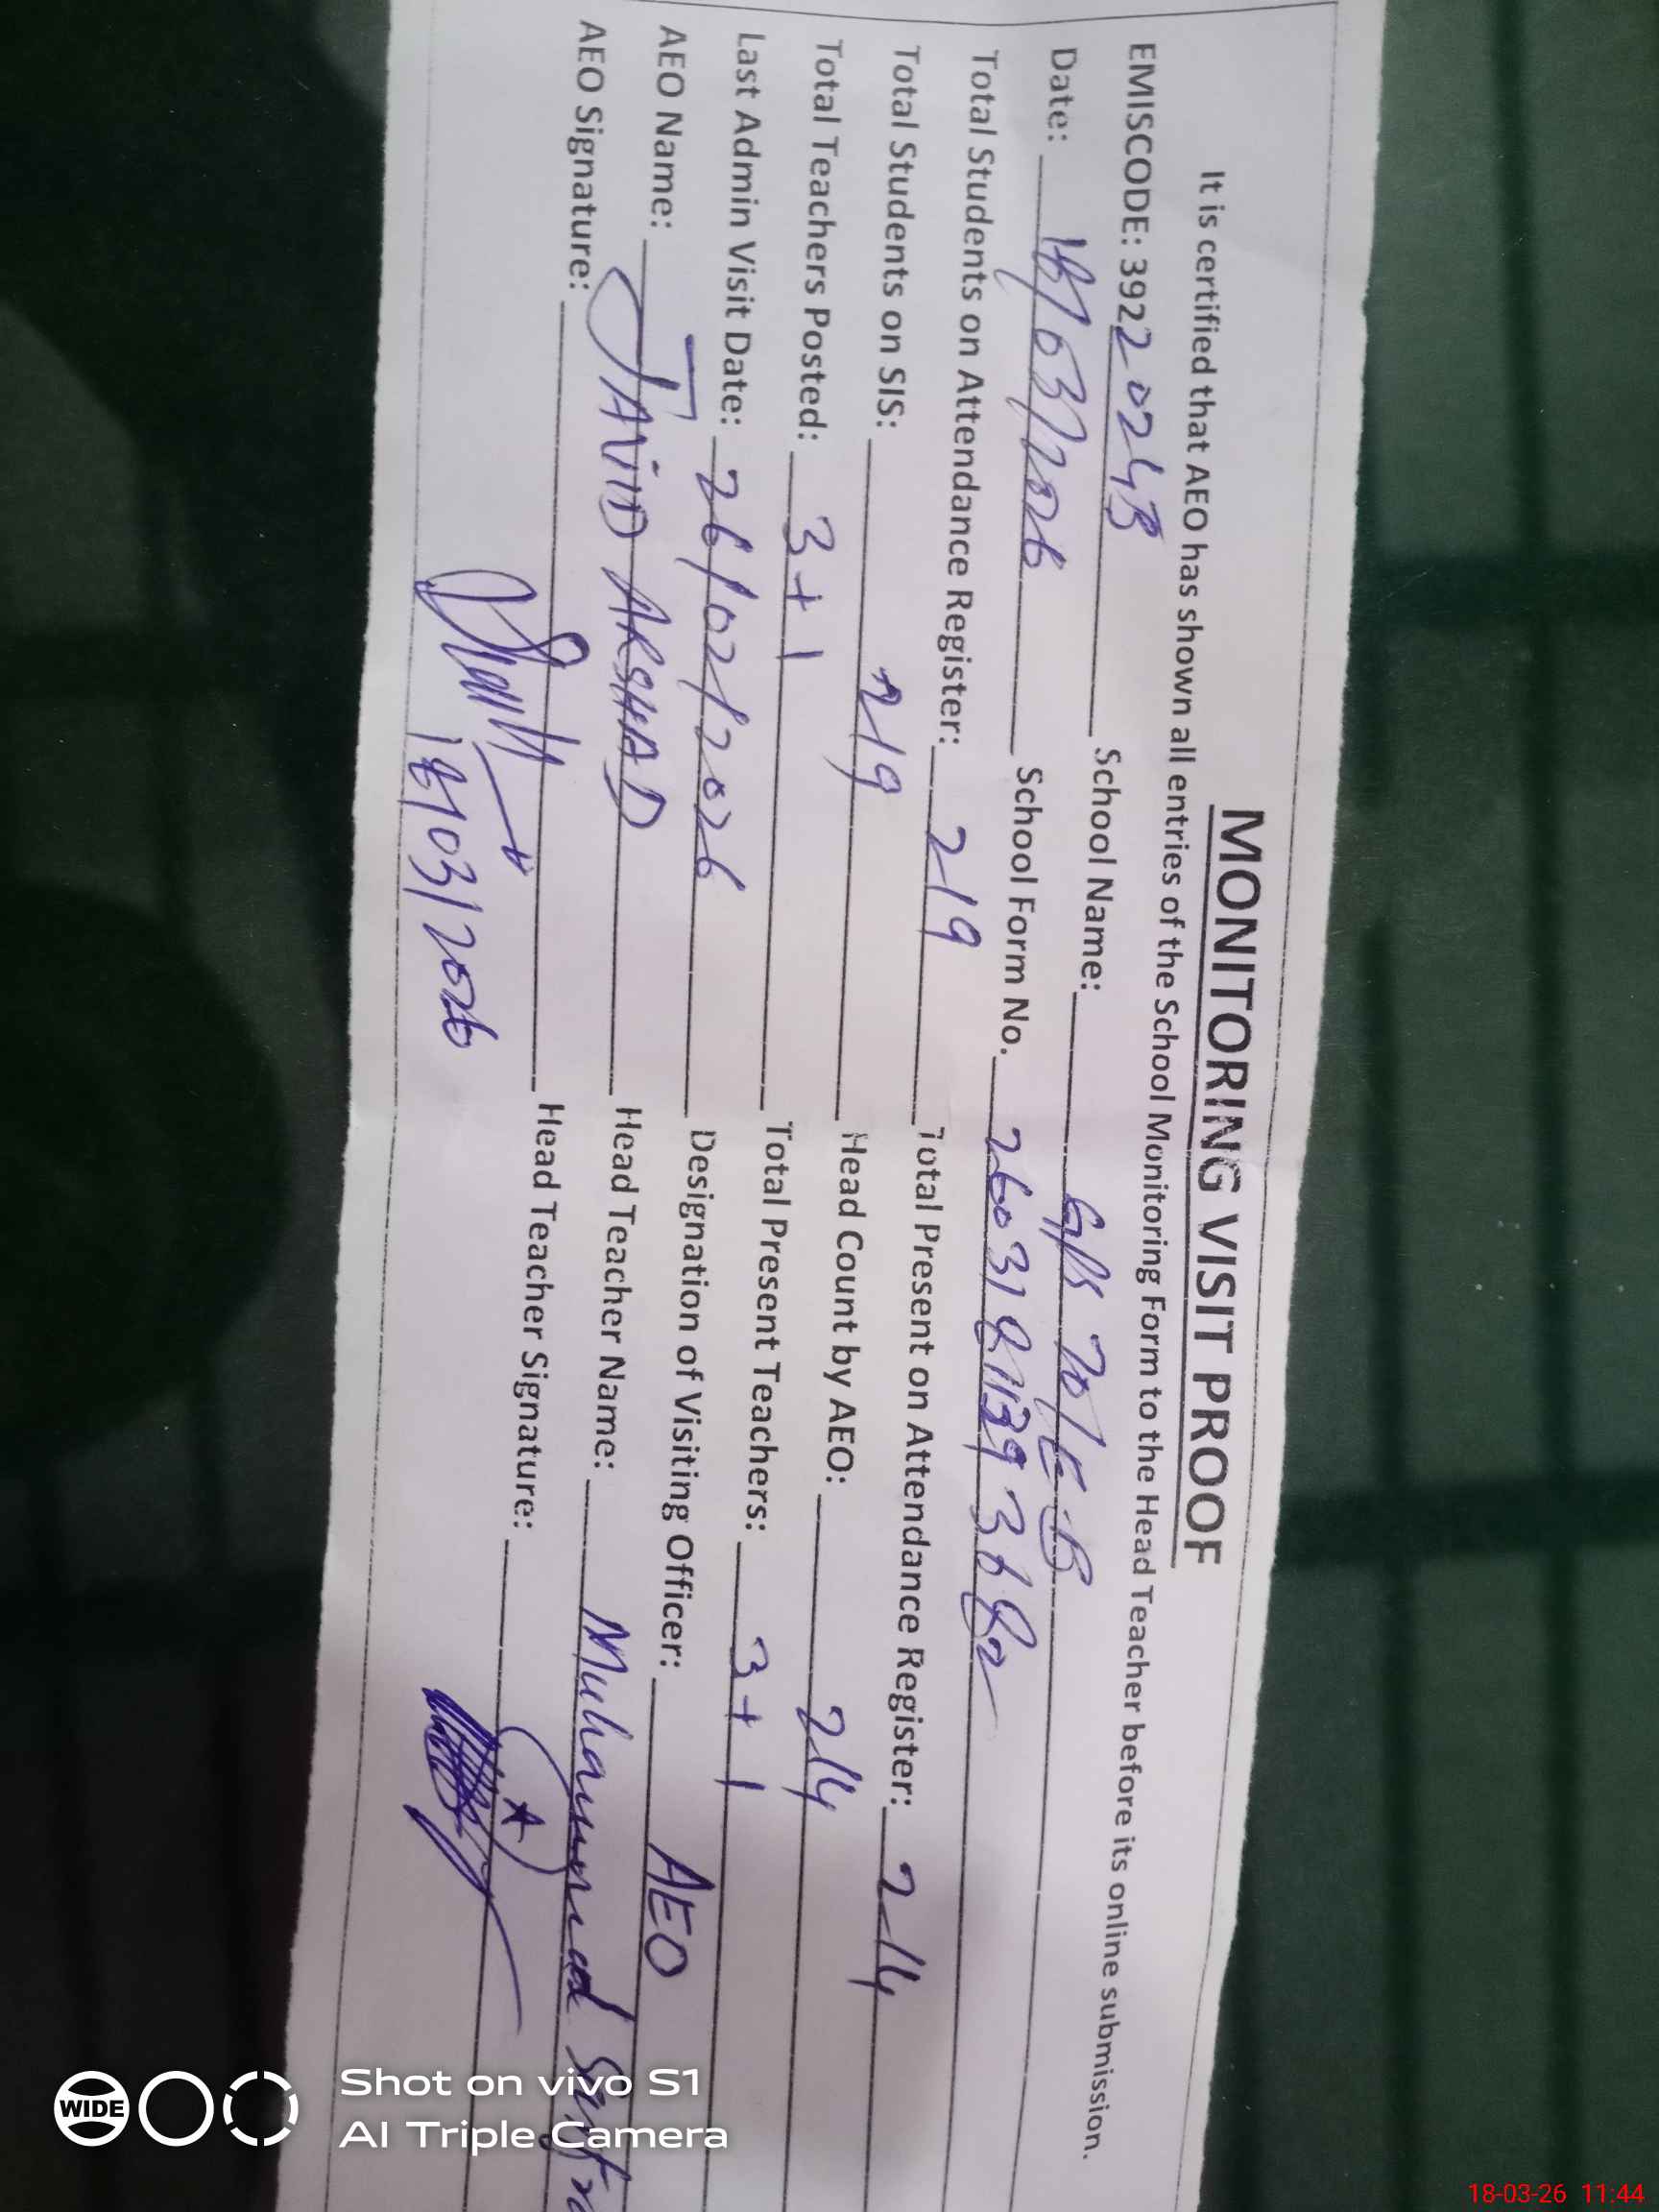 MONITORING VISIT PROOF
It is certified that AEO has shown all entries of the School Monitoring Form to the Head Teacher before its online submission.
EMISCODE: 39220243 School Name: GPS 70/E.B
Date: 18/03/2026 School Form No.
Total Students on Attendance Register: 219 Total Present on Attendance Register: 214
Total Students on SIS: 219 Head Count by AEO: 214
Total Teachers Posted: 3+1 Total Present Teachers: 3+1
Last Admin Visit Date: 26/02/2026 Designation of Visiting Officer: AEO
AEO Name: JAVID ARSHAD Head Teacher Name: Muhammad
AEO Signature: Head Teacher Signature:
18/03/2026
WIDE
Shot on vivo S1
AI Triple Camera
18-03-26 11:44